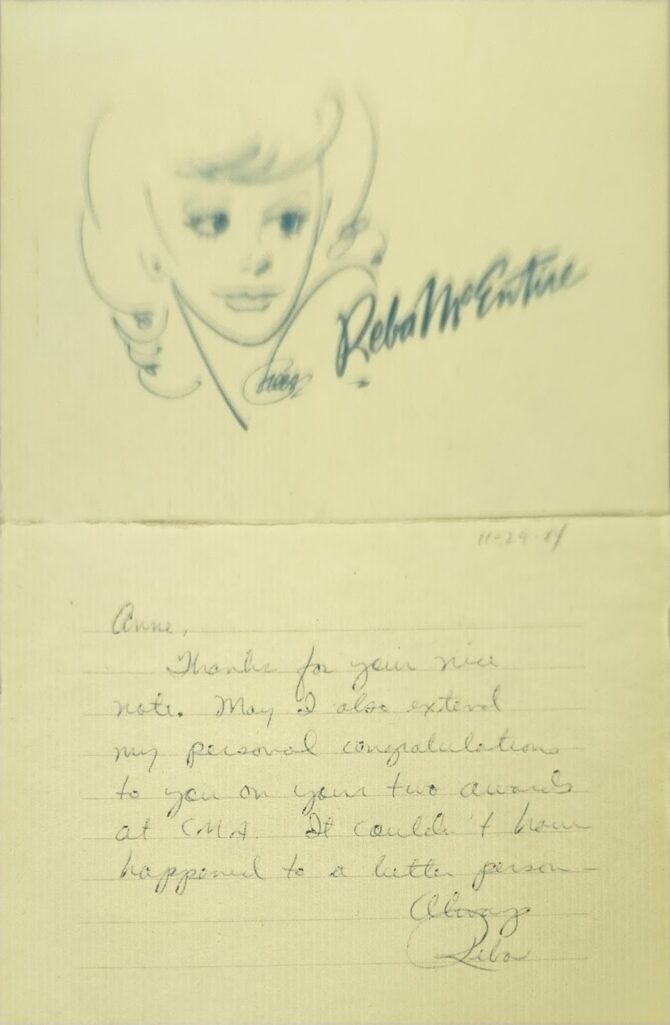 Reba McEntire
11-29-84
Anne,
Thanks for your nice
note. May I also extend
my personal congratulations
to you on your two awards
at CMA. It couldn't have
happened to a better person—
Always
Reba